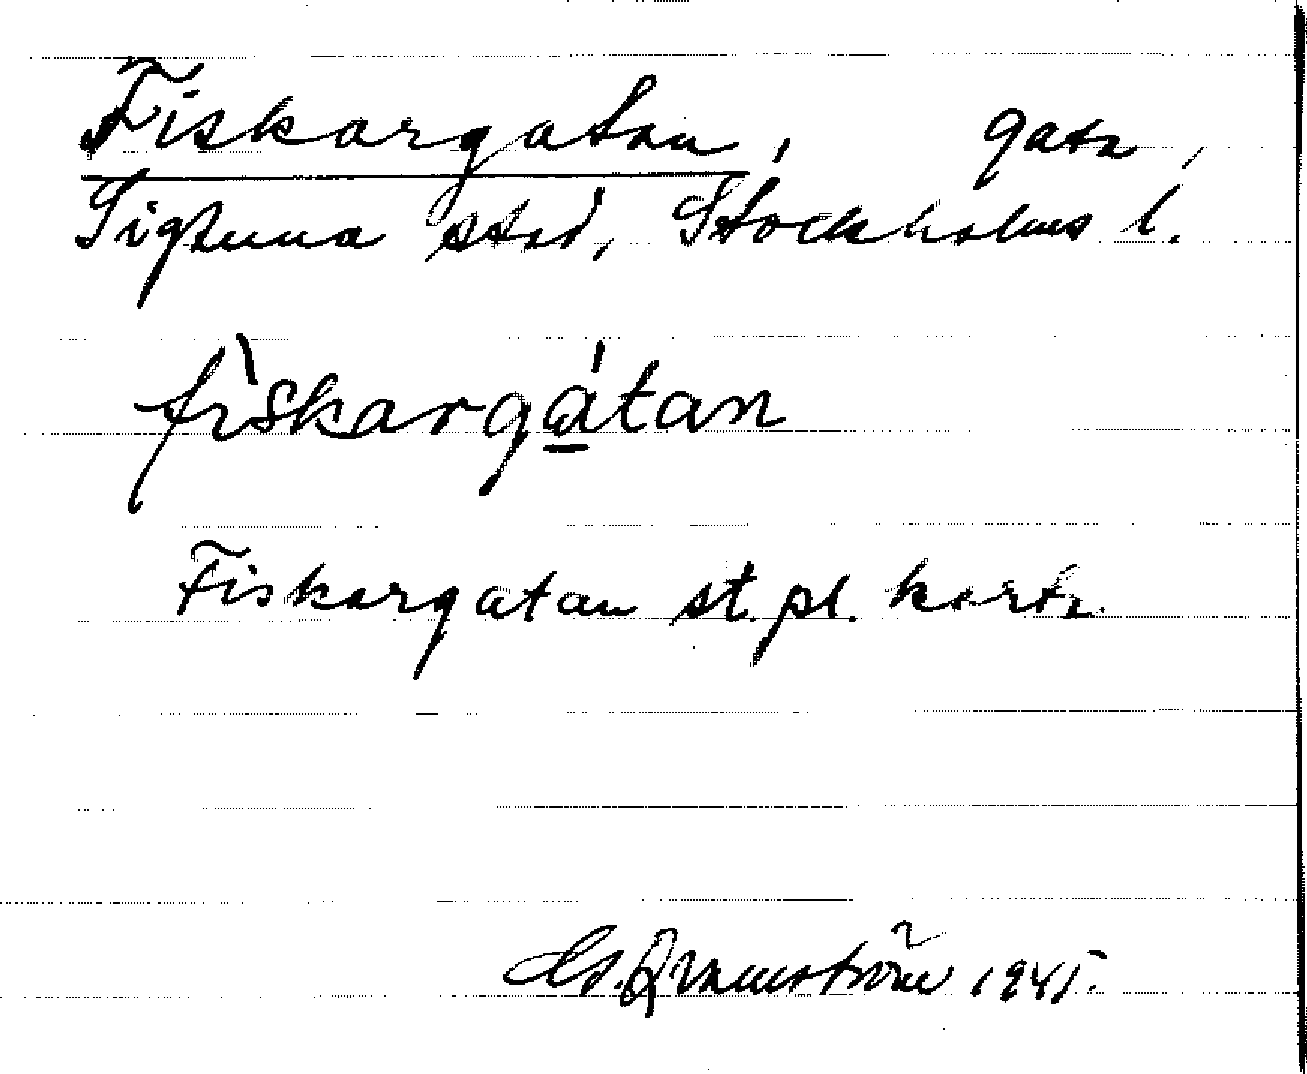 Fiskargatan, gata,
Sigtuna stad, Stockholms l.
fìskargátan
Fiskargatan st.pl. karta
1945.